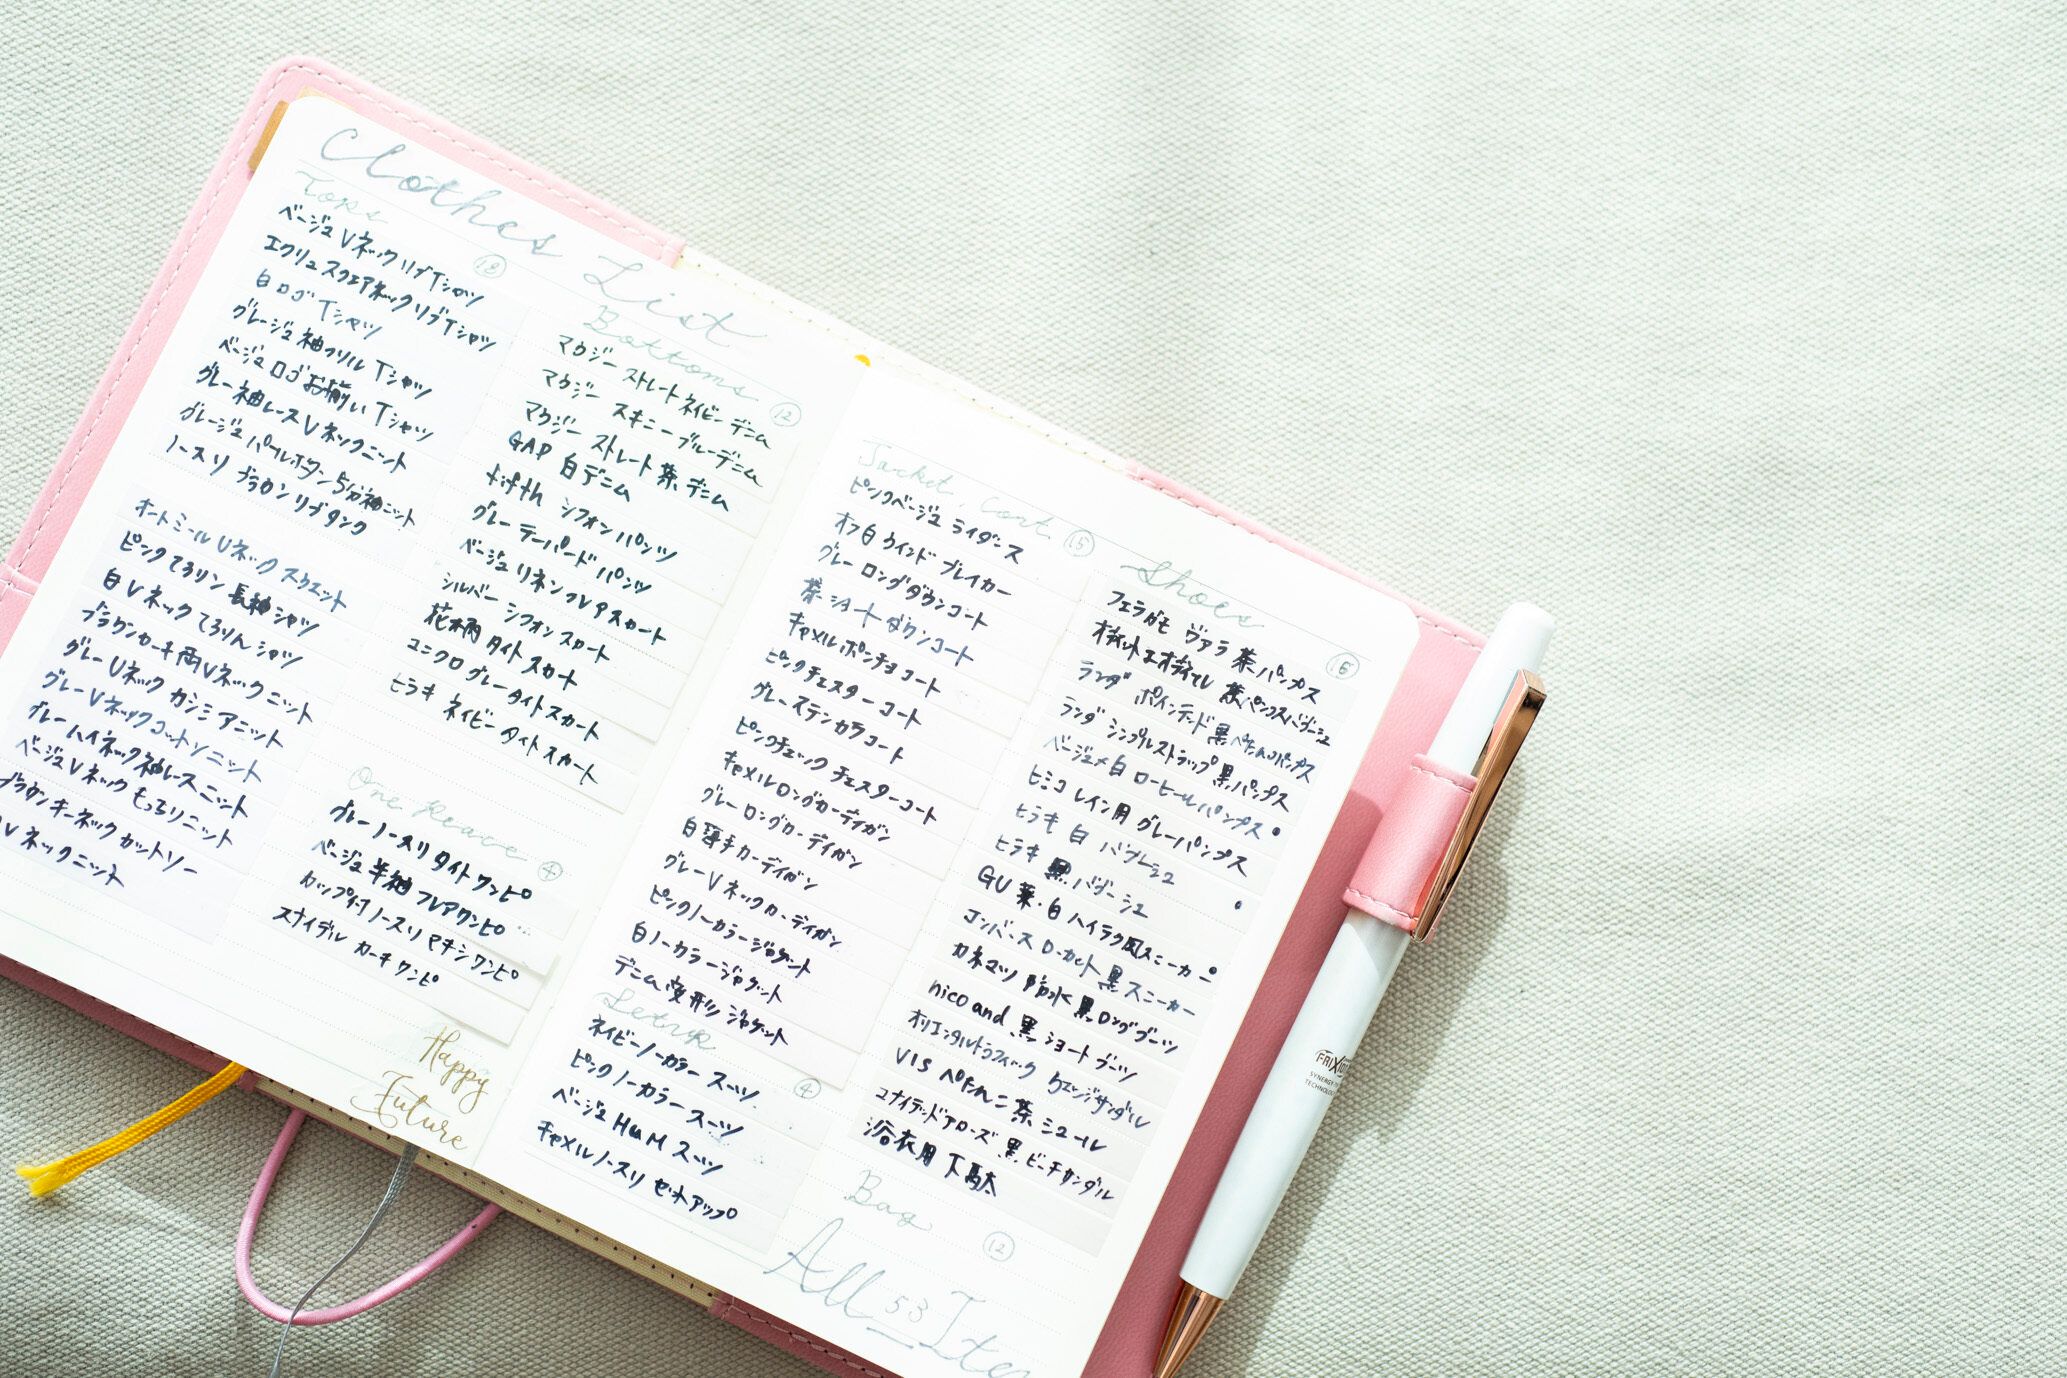 Clothes List
Tops
18
ベージュVネックリブTシャツ
エクリュスクエアネックリブTシャツ
白ロゴTシャツ
グレージュ袖フリルTシャツ
ベージュロゴお揃いTシャツ
グレー袖レースVネックニット
グレージュパールボタン5分袖ニット
ノースリブラウンリブタンク
オートミールUネックスウェット
ピンクてろりん長袖シャツ
白Vネックてろりんシャツ
ブラウンカーキ両Vネックニット
グレーUネックカシミアニット
グレーVネックコットンニット
グレーハイネック袖レースニット
ベージュVネックもっちりニット
ブラウンキーネックカットソー
Vネックニット
Bottoms
12
マウジー ストレートネイビーデニム
マウジー スキニーブルーデニム
マウジー ストレート茶デニム
GAP 白デニム
fifth シフォンパンツ
グレーテーパードパンツ
ベージュリネンフレアスカート
シルバーシフォンスカート
花柄タイトスカート
ユニクログレータイトスカート
ヒラキ ネイビータイトスカート
One Peace
4
グレーノースリタイトワンピ
ベージュ半袖フレアワンピ
カップ付ノースリマキシワンピ
スナイデル カーキワンピ
Happy
Future
Jacket, Coat
15
ピンクベージュライダース
オフ白ウインドブレイカー
グレーロングダウンコート
茶ショートダウンコート
キャメルポンチョコート
ピンクチェスターコート
グレーステンカラコート
ピンクチェックチェスターコート
キャメルロングカーディガン
グレーロングカーディガン
白薄手カーディガン
グレーVネックカーディガン
ピンクノーカラージャケット
白ノーカラージャケット
デニム変形ジャケット
Setup
4
ネイビーノーカラースーツ
ピンクノーカラースーツ
ベージュH&Mスーツ
キャメルノースリセットアップ
Shoes
16
フェラガモ ヴァラ 茶パンプス
ランダ ポインテッド黒ぺたんこパンプス
ランダ シンプルストラップ黒パンプス
ベージュ×白 ローヒールパンプス
ヒミコ レイン用グレーパンプス
ヒラキ 白バブーシュ
ヒラキ 黒バブーシュ
GU 茶・白ハイテク風スニーカー
コンバース ローカット黒スニーカー
カネマツ 防水黒ロングブーツ
nico and 黒ショートブーツ
オリエンタルトラフィック ウェッジサンダル
VIS ぺたんこ茶ミュール
ユナイテッドアローズ 黒ビーチサンダル
浴衣用下駄
Bag
12
All 53 Ite
FRIXION
SYNERGY-TIP
TECHNOLOGY